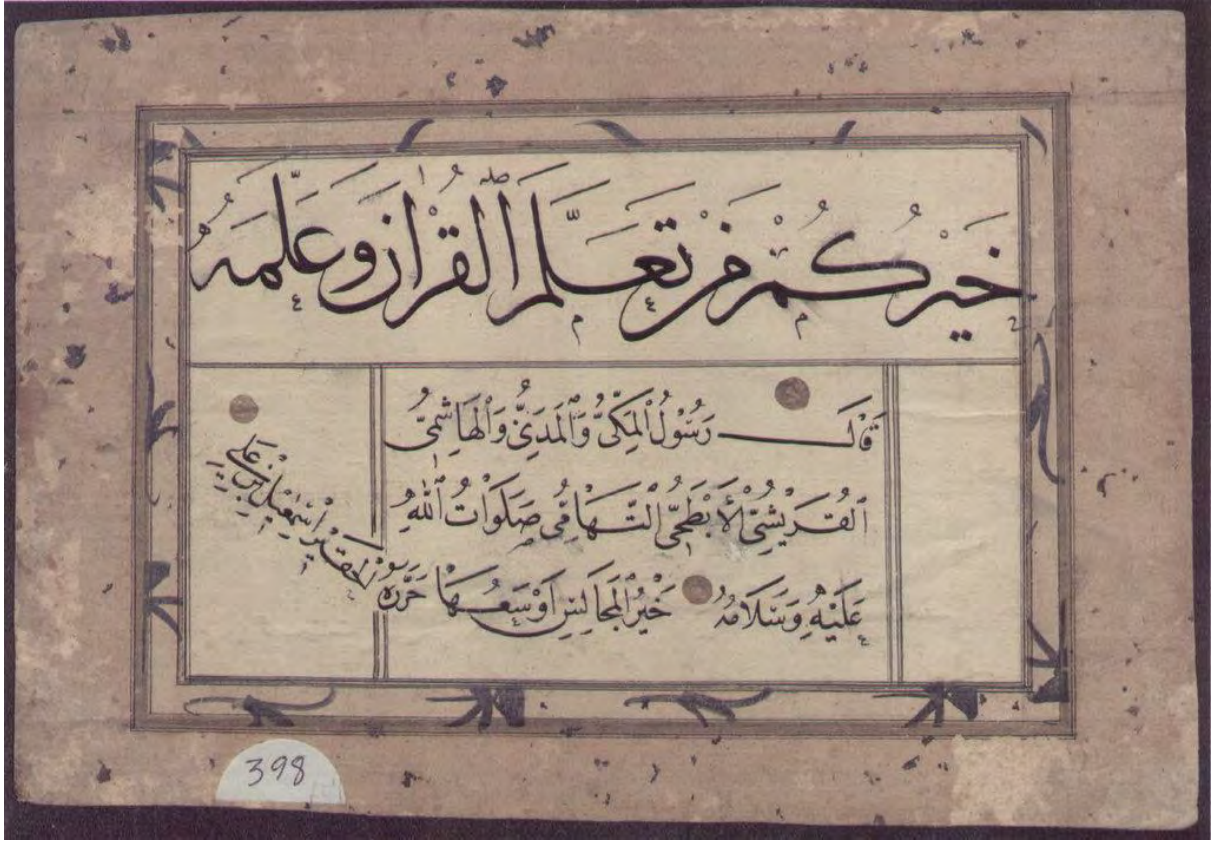 خَيْرُكُمْ مَنْ تَعَلَّمَ الْقُرْاٰنَ وَعَلَّمَهُ
قَالَ رَسُوْلُ الْمَكِّىُّ وَالْمَدَنِىُّ وَالْهَاشِمِىُّ
الْقُرَيْشِىُّ الْأَبْطَحِىُّ التِّهَامِىُّ صَلَوَاتُ اللّٰهِ
عَلَيْهِ وَسَلَامُهُ خَيْرُ الْمَجَالِسِ اَوْسَعُهَا حَرَّرَهُ
الحقير اسمعيل بن على
398